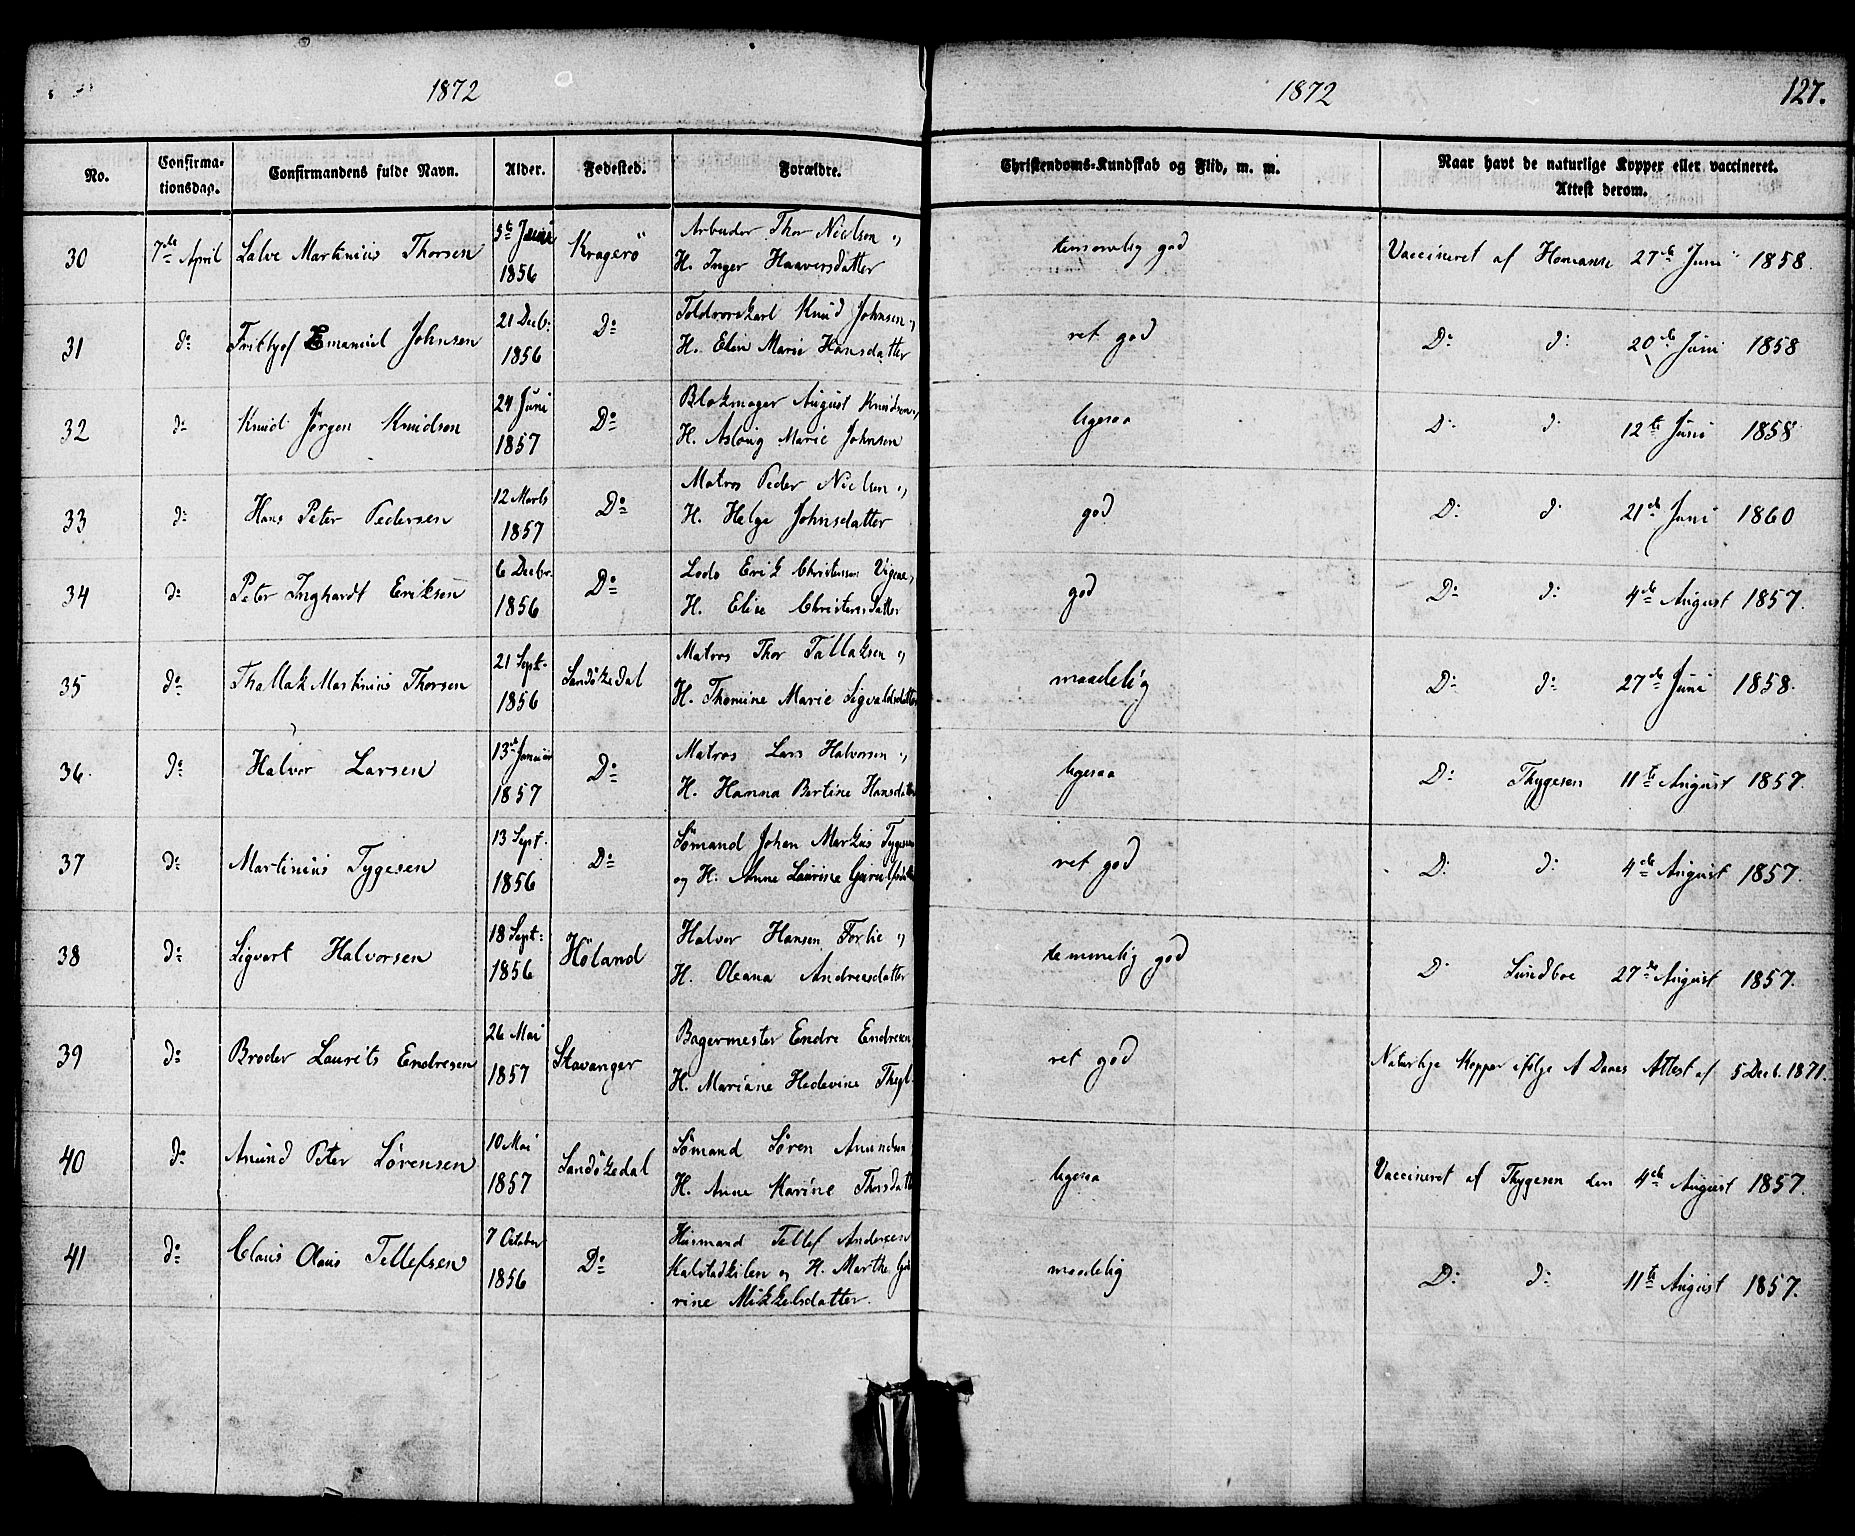 1872
1872 127.
No. Confirma-tionsdag. Confirmandens fulde Navn. Alder. Fødested. Forældre. Christendoms-Kundskab og Flid, m. m. Naar havt de naturlige Kopper eller vaccineret. Attest derom.
30 7de April Salve Martinius Thorsen 5te 1856 Kragerö Arbeider Thor Nielsen og H. Inger Haaversdatter temmelig god Vaccineret af Homanse 27de Juni 1858.
31 do Frithjof Emanuel Johnsen 21 Decb: 1856 Do Knud Johnsen og H. Elen Marie Hansdatter ret god Do do 20de Juni 1858
32 do Knud Jørgen Knudsen 24 Juni 1857 Do Blokmager August Knudsen og H. Aslaug Marie Johnsen ligesaa Do do 12te Juni 1858
33 do Hans Peter Pedersen 12 Marts 1857 Do Matros Peder Nielsen og H. Helge Johnsdatter god Do do 21de Juni 1860
34 do Peter Inghardt Eriksen 6 Decbr. 1856 Do Lods Erik Christensen og H. Elise Christensdatter god Do do 4de August 1857.
35 do Thallak Martinius Thorsen 21 Sept. 1856 Sandökedal Matros Thor Tallaksen og H. Thomine Marie Sigvaldsdatter maadelig Do do 27de Juni 1858.
36. do Halvor Larsen 13de Januar 1857 Do Matros Lars Halvorsen og H. Hanna Bertine Hansdatter ligesaa Do Thygesen 11te August 1857.
37 do Martinius Tygesen 13 Sept. 1856 Do Sömand Johan Markus Tygesen og H. Anne Laurine ret god Do do 4de August 1857.
38 do Sigvart Halvorsen 18 Sept: 1856 Höland Halvor Hansen og H. Oleana Andreasdatter temmelig god Do Sundboe 27de August 1857.
39 do Broder Laurits Endresen 26 Mai 1857 Stavanger Bagermester Endre Endresen H. Mariane Hedevine ret god Naturlige Kopper ifølge Attest af 5 Decb. 1871.
40 do Anund Peter Sörensen 10 Mai 1857 Sandökedal Sömand Sören Anundsen H. Anne Karine Thorsdatter ligesaa Vaccineret af Thygesen den 4de August 1857.
41 do Claus Olaus Tellefsen 7 October 1856 Do Huusmand Tellef Andersen Kalstadkilen og H. Marthe Gu rine Mikkelsdatter. maadelig Do do 11te August 1857.